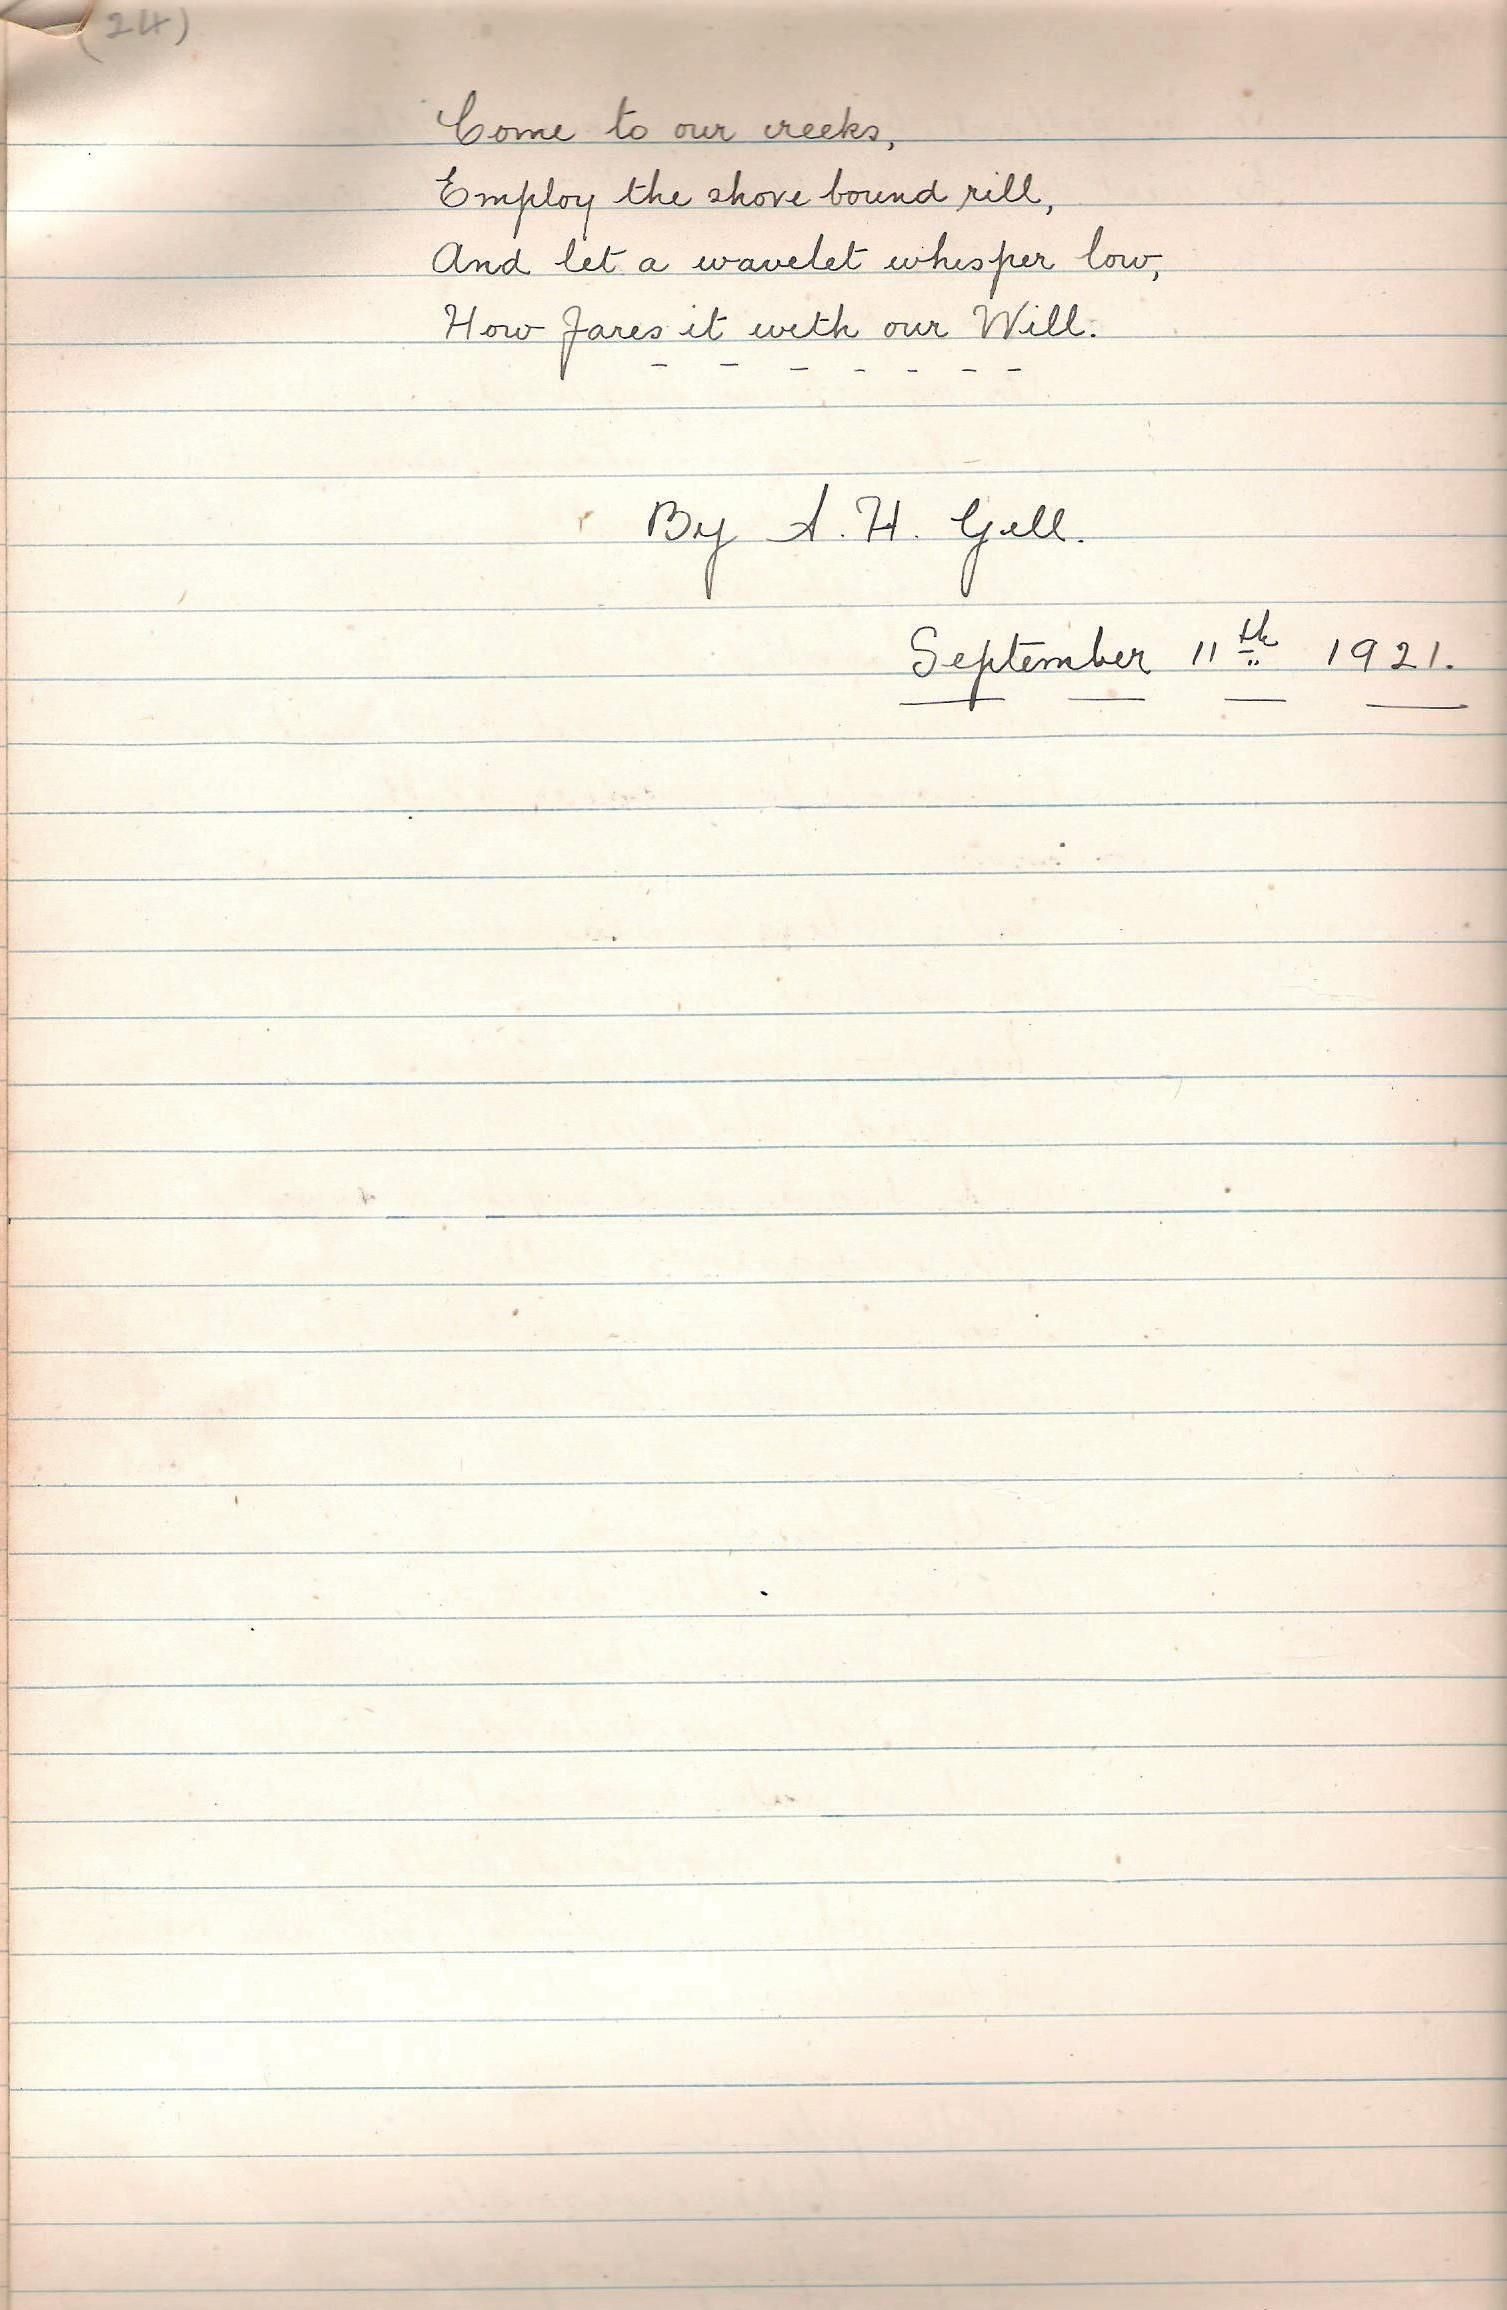 (24)
Come to our creeks,
Employ the shore bound rill,
And let a wavelet whisper low,
How fares it with our Will.
By A. H. Gell.
September 11th 1921.